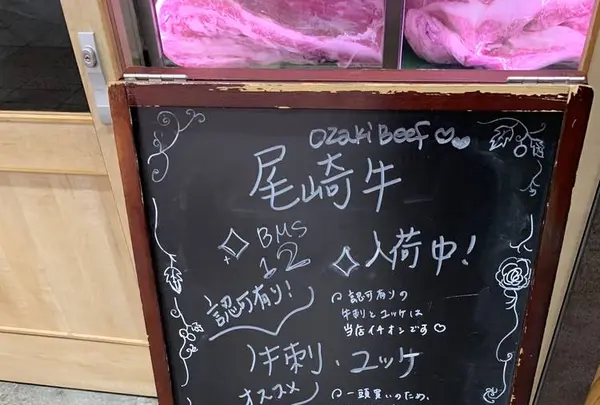 Ozaki Beef♡♡
尾崎牛
BMS
12
入荷中!
認可有り!
認可有りの
牛刺とユッケは
当店イチオシです♡
牛刺・ユッケ
オススメ
一頭買いのため、